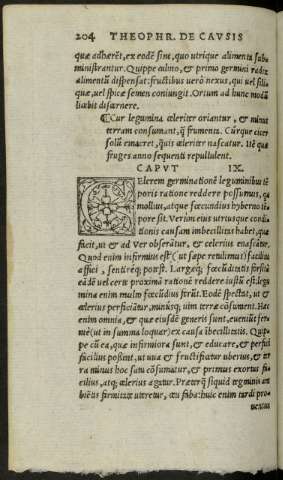 204 THEOPHR. DE CAVSIS
quæ adhæret, ex eodē sint, quo utrique alimenta subministrantur. Quippe
ministrantur. Quippe culmo, & primo germini radix
alimentū dispensat: fructibus uerò nexus, qui uel siliquæ,
uel spicæ semen coniungit. Ortum ad hunc modū
licebit discernere.
¶Cur legumina celeriter oriantur, & minus
terram consumant, q̄ frumenta. Cúrque cicer
solū emacret, quis celeriter nascatur. Itē quæ
fruges anno sequenti repullulent.
CAPVT IX.
Celerem germinationē leguminibus tē
poris ratione reddere possumus, quæ
mollius, atque fœcundius hyberno tē
pore sit. Verùm eius utrusque conditionis
causam imbecillitas habet, quæ
facit, ut & ad Ver obserātur, & celerius enascātur.
Quod enim infirmius est (ut sæpe retulimus) facilius
affici, sentiréq; potest. Largæq; fœcūditatis
eadē uel certè proximā rationē reddere iustū est: legumina
mina enim multū fœcūdius ferūt. Eodē spectat, ut &
celerius perficiātur, minúsq; uim terræ cōsumēt. Hæc
enim omnia, & quæ eiusdē generis sunt, eueniūt fermè
(ut in summa loquar) ex causa ībecillitatis. Quippe
cū ea, quæ infirmiora sunt, & educare, & perfici
facilius possent, ut uua & fructificatio uberius, & terra
minus hoc satu cōsumatur, & primus exortus facilius,
atq; celerius agatur. Præterq̄ siquid tegminis ambiēns
firmitate uteretur, ceu faba: huic enim tardi pro-